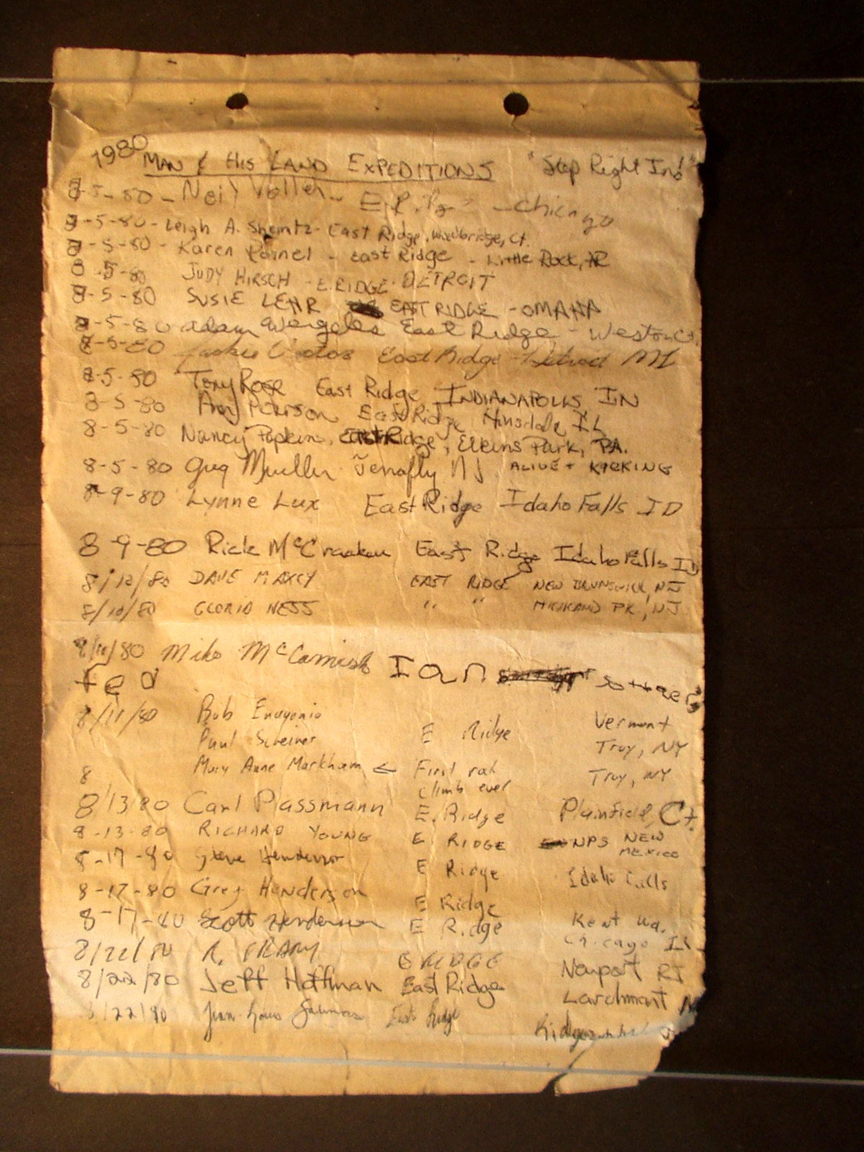 1980 MAN & HIS LAND EXPEDITIONS "Step Right In!"
8-5-80 - Neil - Chicago
8-5-80 - Leigh A. - East Ridge, Woodbridge, Ct.
8-5-80 - Karen - East Ridge - Little Rock, AR
8-5-80 JUDY HIRSCH - E. RIDGE - DETROIT
8-5-80 SUSIE LEHR EAST RIDGE - OMAHA
8-5-80 adam East Ridge - Weston Ct.
8-5-80 Jackie East Ridge - Detroit MI
8-5-80 Tony East Ridge, INDIANAPOLIS IN
8-5-80 Amy Pearson East Ridge Hinsdale IL
8-5-80 Nancy Popkin, East Ridge, Elkins Park, PA.
8-5-80 Greg Mueller Tenafly NJ ALIVE + KICKING
8-9-80 Lynne Lux East Ridge Idaho Falls ID
8-9-80 Rick McCraaken East Ridge Idaho Falls ID
8/10/80 DAVE MAXCY EAST RIDGE NEW BRUNSWICK, NJ
8/10/80 GLORIA NESS " " HIGHLAND PK, NJ
80 Mike McCamish Ian
Ted
8/11/80 Bob Vermont
Paul Scheiner E Ridge Troy, NY
8 Mary Anne Markham ← First real climb ever Troy, NY
8/13/80 Carl Plassmann E. Ridge Plainfield, Ct.
8-13-80 RICHARD YOUNG E RIDGE NPS NEW MEXICO
8-17-80 Steve Henderson E Ridge Idaho Falls
8-17-80 Greg Henderson E Ridge
8-17-80 Scott Henderson E Ridge Kent Wa.
8/22/80 R. E RIDGE Chicago Il
8/22/80 Jeff Hoffman East Ridge Newport RI
8/22/80 East Ridge Larchmont N